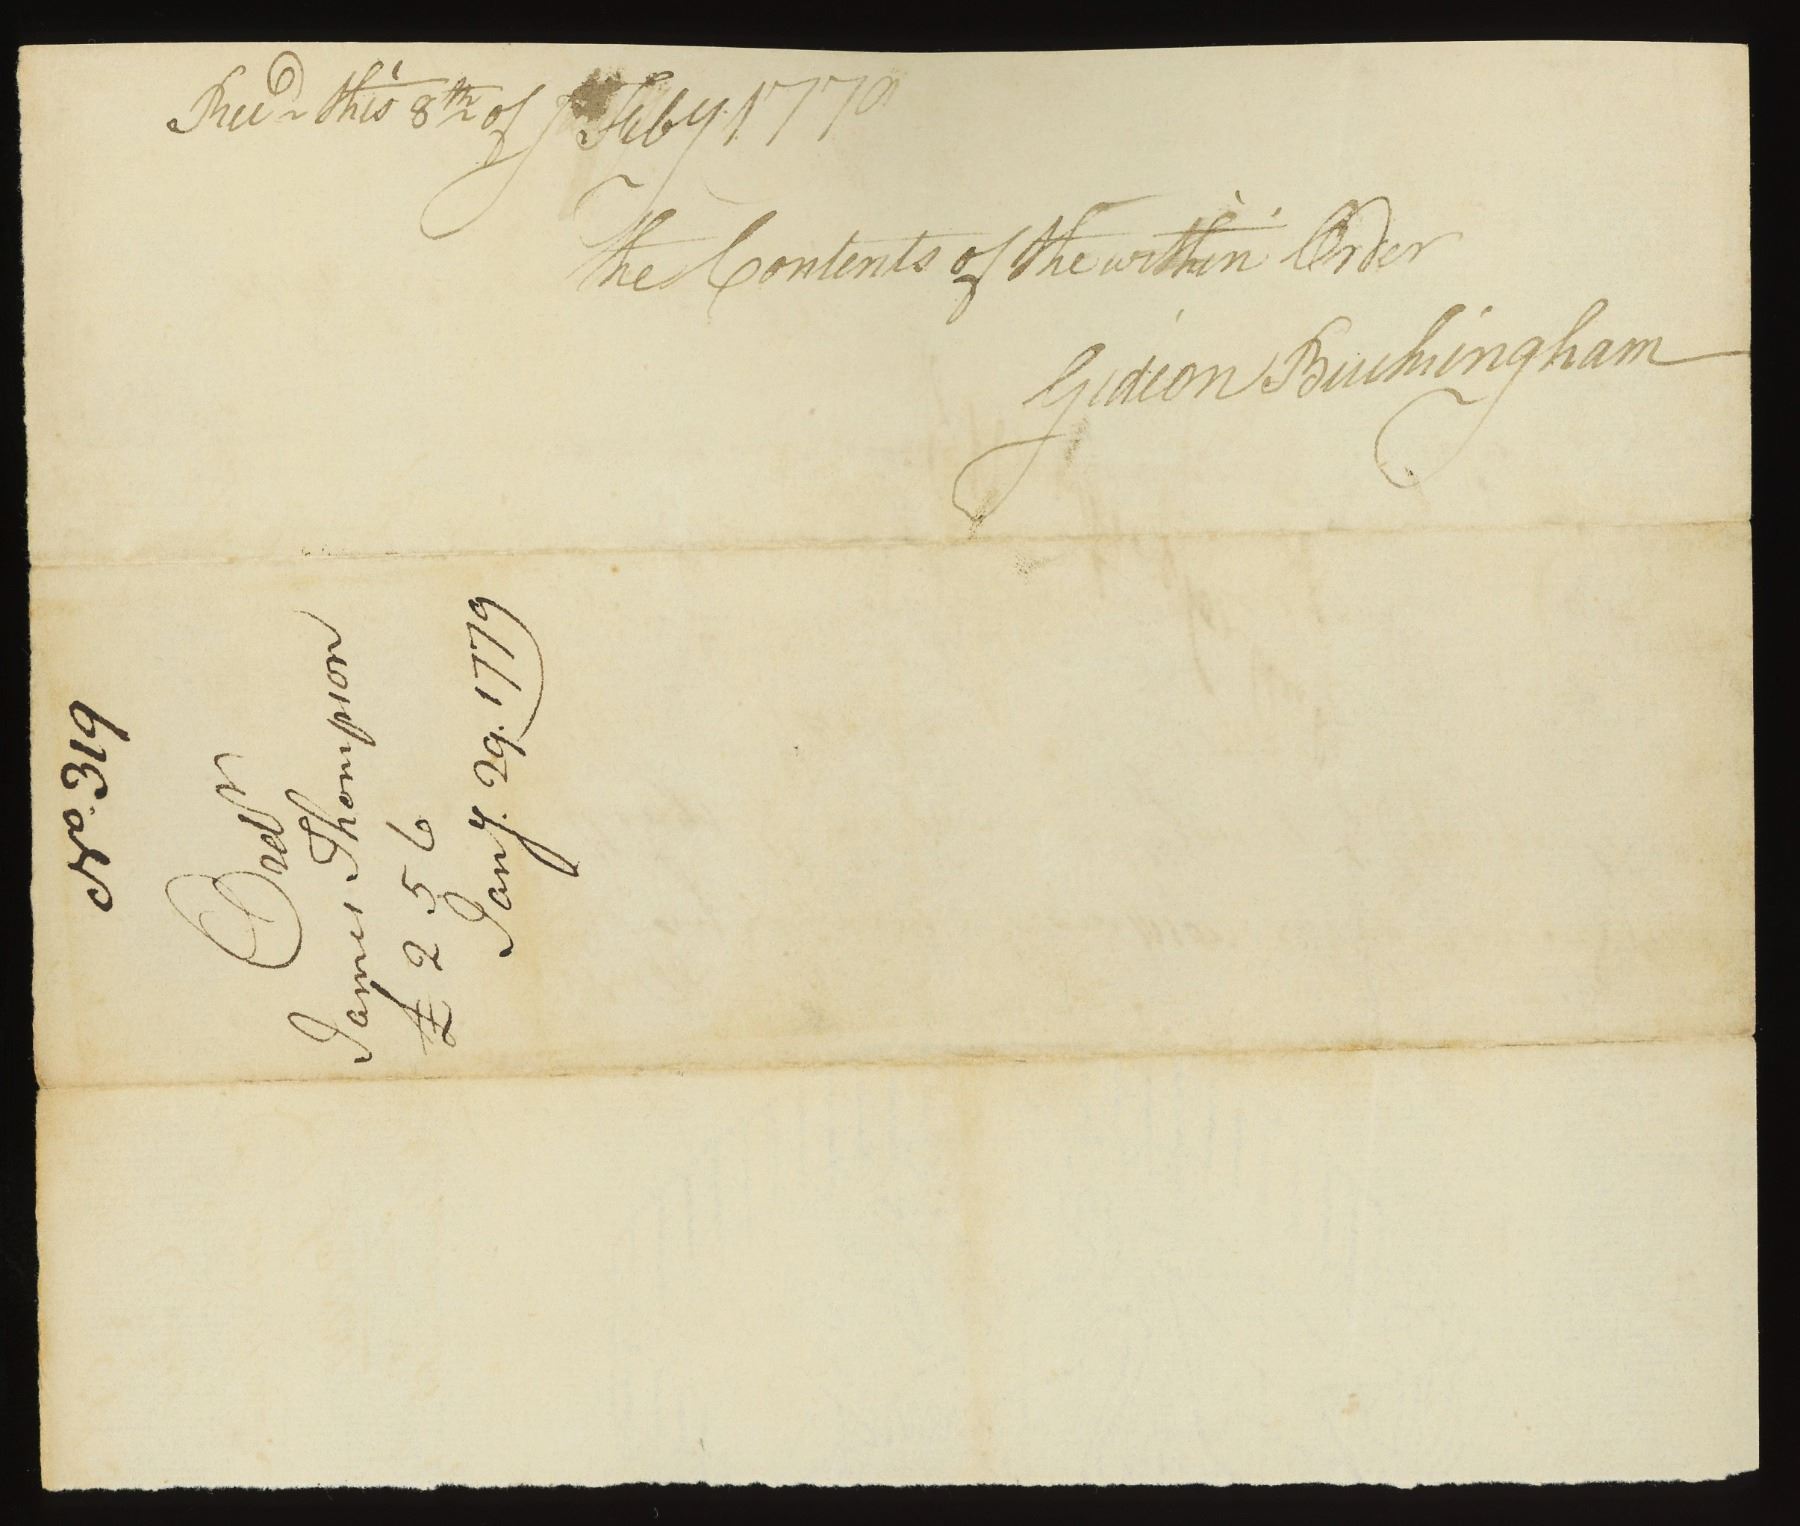 Recd this 8th of Feby 1779
The Contents of the within Order
Gideon Buckingham
No. 319
Order
James Thompson
£ 2 5 6
Jany. 29. 1779